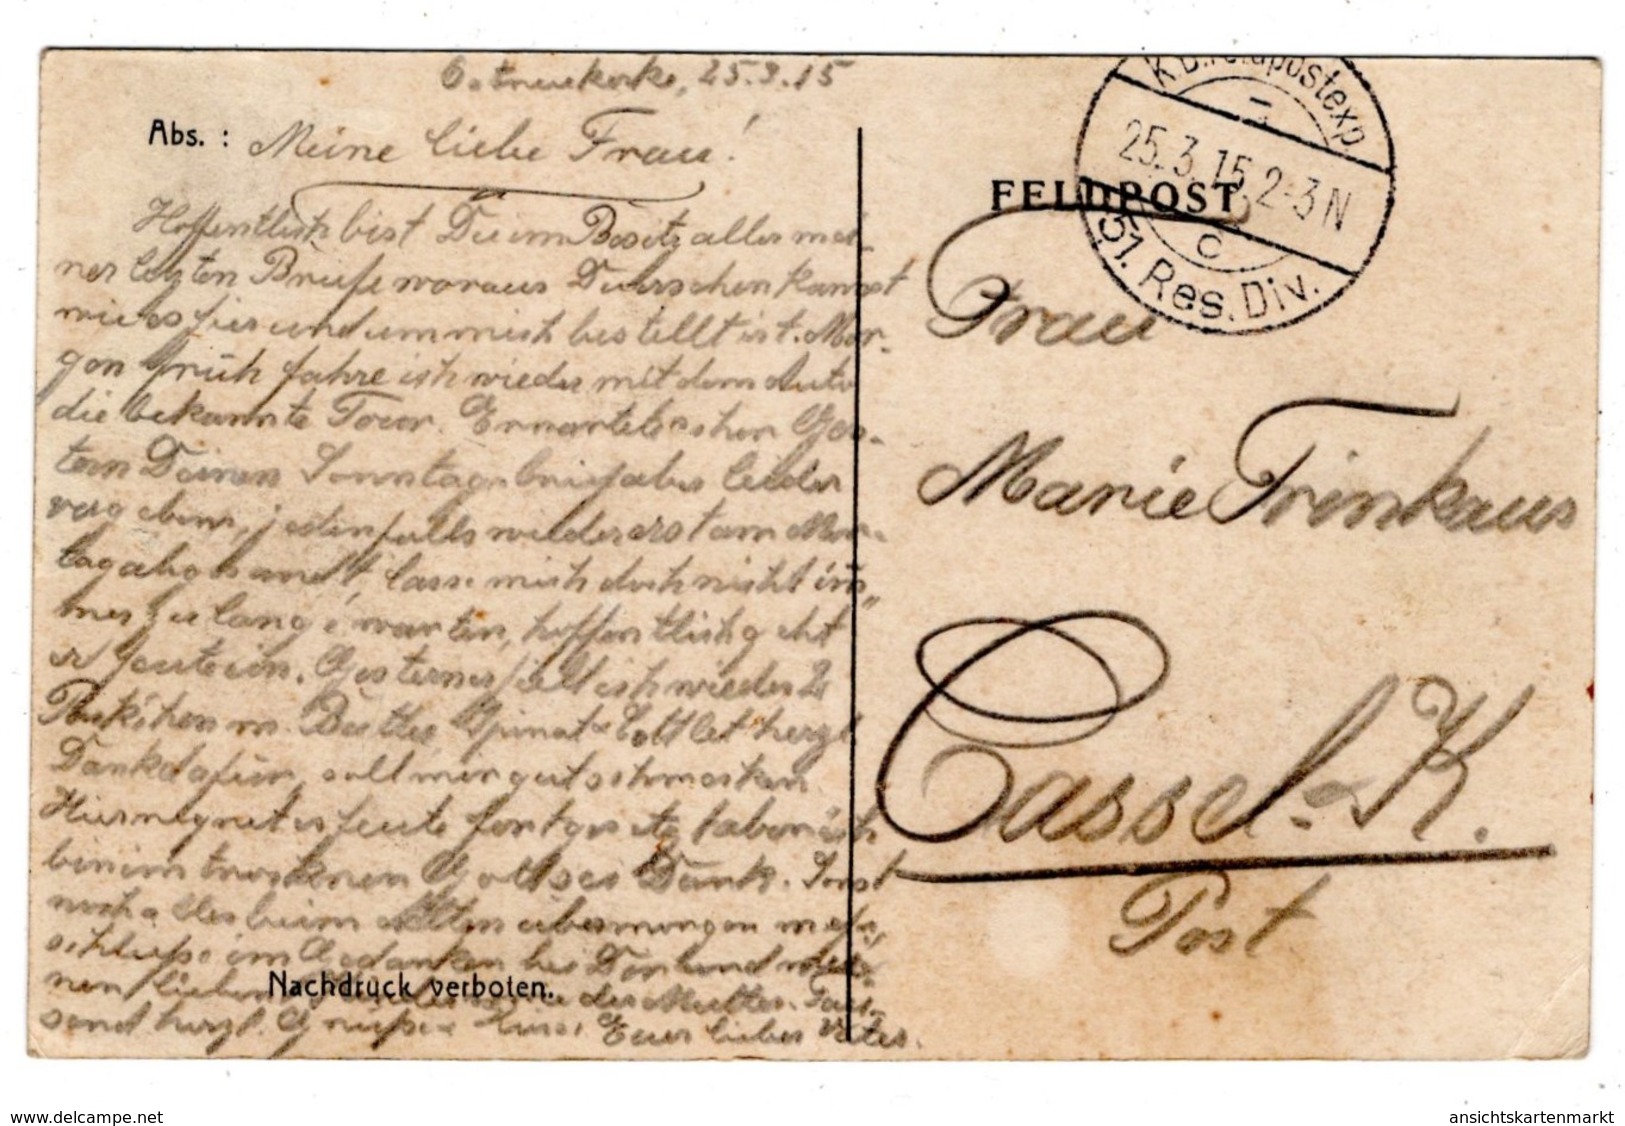 Ostnieukerke, 25.3.15
Abs. : Meine liebe Frau!
Hoffentlich bist Du im Besitz aller mei-
ner letzten Briefe woraus Du ersehen kannst
wie es hier und um mich bestellt ist. Mor-
gen früh fahre ich wieder mit dem Auto
die bekannte Tour. Erwartete schon Ges-
tern Deinen Sonntagsbrief aber leider
vergebens, jedenfalls wieder erst am Mon-
tag abgesandt, lasse mich doch nicht im-
mer zu lange warten, hoffentlich geht
er heute ein. Gestern erhielt ich wieder 2
Päckchen m. Butter, Spinat & Cottlet herzl
Dank dafür, soll mir gut schmecken.
Hier regnet es heute fortgesetzt aber ich
bin im trockenen Gott sei Dank. Sonst
noch alles beim Alten übermorgen mehr,
schließe im Gedanken bei Dir und mei-
nen lieben der Mutter. Tau-
send herzl. Grüße Euer lieber Vater.
Nachdruck verboten.
FELDPOST
K.B. Feldpostexp
25.3.15 2-3N
c
51. Res. Div.
Frau
Marie Trinkaus
Cassel-K.
Post
www.delcampe.net
ansichtskartenmarkt